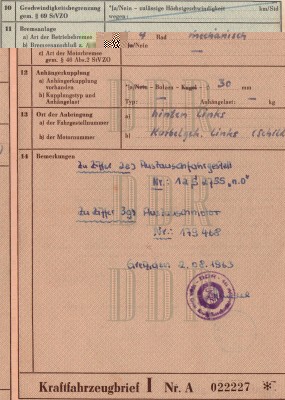 10 Geschwindigkeitsbegrenzung *Ja/Nein - zulässige Höchstgeschwindigkeit km/Std
gem. § 60 StVZO wegen:
11 Bremsanlage
a) Art der Betriebsbremse 4 Rad mechanisch
b) Bremsenanschluß *Ja/Nein
c) Art der Motorbremse —
gem. § 40 Abs.2 StVZO
12 Anhängerkupplung
a) Anhängerkupplung *Ja/Nein - Bolzen - Kugel - : 30 mm
vorhanden
b) Kupplungstyp und Typ: — Anhängelast: — kg
Anhängelast
13 Ort der Anbringung a) hinten Links
a) der Fahrgestellnummer
b) der Motornummer b) Kurbelgeh. Links (Schild
14 Bemerkungen
Zu Ziffer Austauschfahrgestell
Nr.:
Zu Ziffer Austauschmotor
Nr.: 179 468
2.08.1963
DDR
DDR
Kraftfahrzeugbrief I Nr. A 022227 *